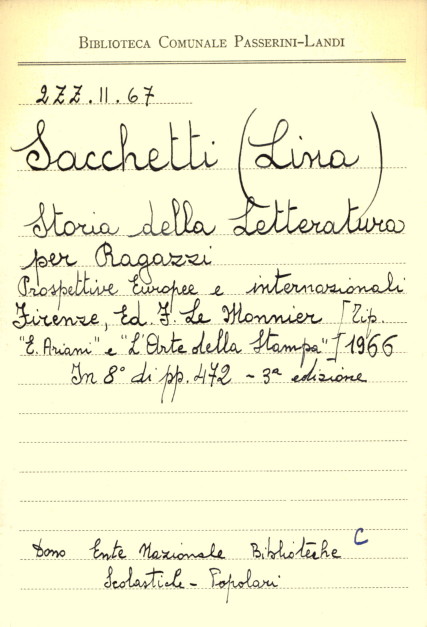 BIBLIOTECA COMUNALE PASSERINI-LANDI
2ZZ.II.67
Sacchetti (Lina)
Storia della Letteratura
per Ragazzi
Prospettive Europee e internazionali
Firenze, Ed. F. Le Monnier [Tip.
"E. Ariani" e "L'Arte della Stampa"] 1966
In 8° di pp. 472 - 3ª edizione
C
Dono Ente Nazionale Biblioteche
Scolastiche - Popolari